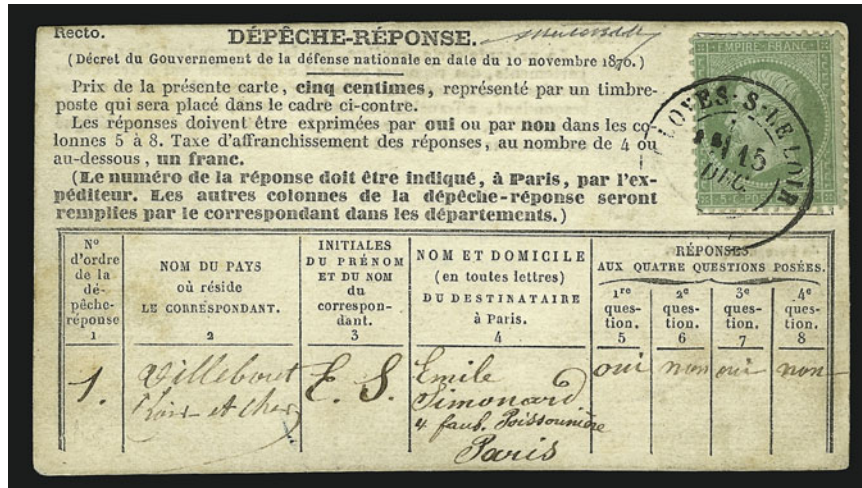 Recto.
DÉPÊCHE-RÉPONSE.
(Décret du Gouvernement de la défense nationale en date du 10 novembre 1870.)
Prix de la présente carte, cinq centimes, représenté par un timbre-
poste qui sera placé dans le cadre ci-contre.
Les réponses doivent être exprimées par oui ou par non dans les co-
lonnes 5 à 8. Taxe d'affranchissement des réponses, au nombre de 4 ou
au-dessous, un franc.
(Le numéro de la réponse doit être indiqué, à Paris, par l'ex-
péditeur. Les autres colonnes de la dépêche-réponse seront
remplies par le correspondant dans les départements.)
EMPIRE FRANC
CLOYES-S-LE LOIR
15
DEC
N°
d'ordre
de la
dé-
pêche-
réponse
1
NOM DU PAYS
où réside
LE CORRESPONDANT.
2
INITIALES
DU PRÉNOM
ET DU NOM
du
correspon-
dant.
3
NOM ET DOMICILE
(en toutes lettres)
DU DESTINATAIRE
à Paris.
4
RÉPONSES
AUX QUATRE QUESTIONS POSÉES.
1re
ques-
tion.
5
2e
ques-
tion.
6
3e
ques-
tion.
7
4e
ques-
tion.
8
1.
Villebout
Loir et Cher
E. S.
Emile
Simonard
4 faub. Poissounière
Paris
oui
non
oui
non